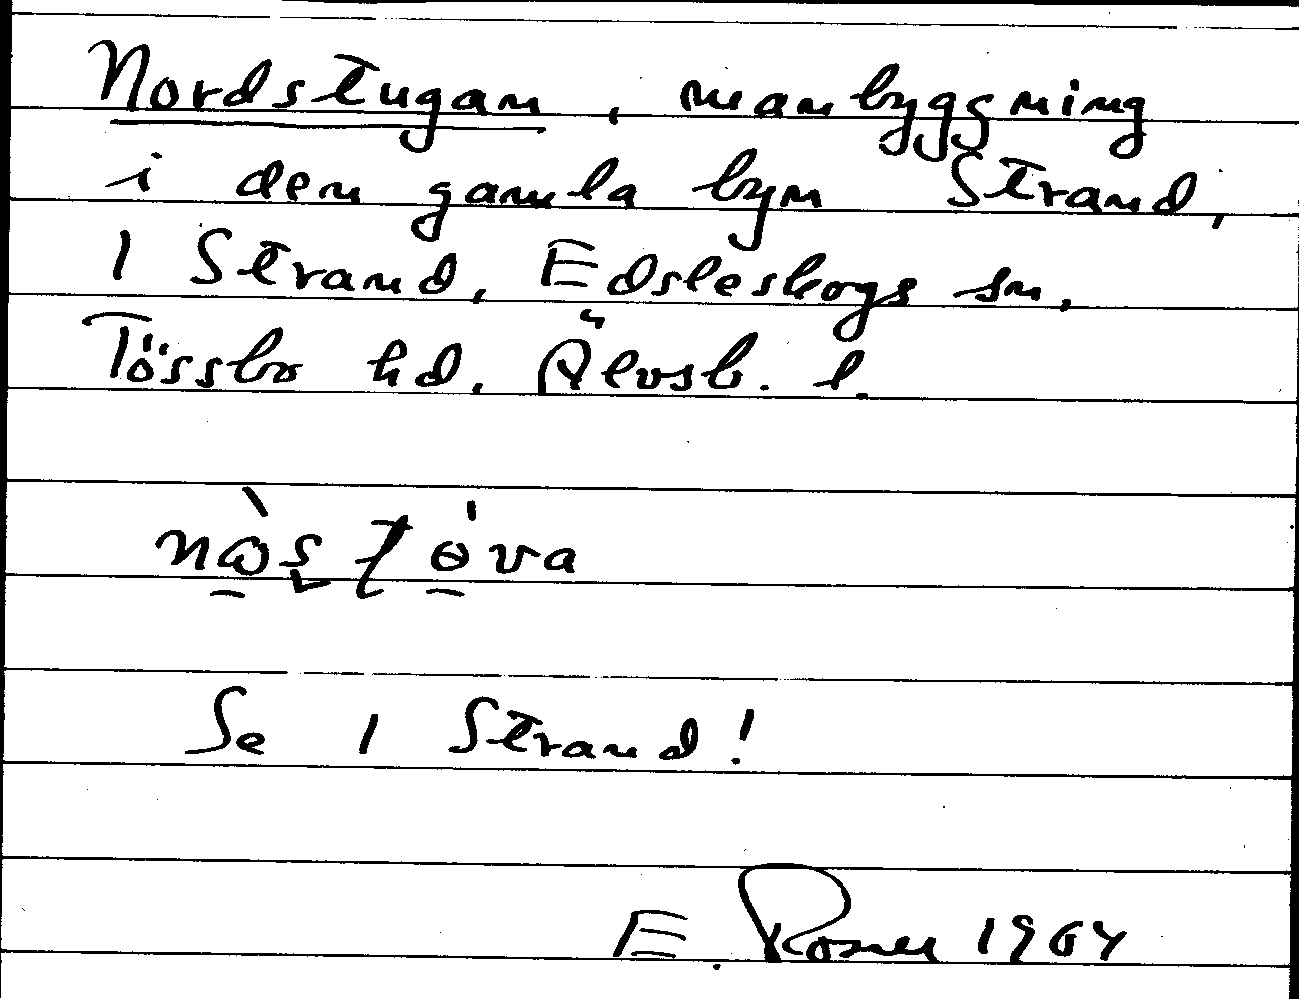 Nordstugan, manbyggning
i den gamla byn Strand,
1 Strand, Edsleskogs sn,
Tössbo hd. Älvsb. l.
Se 1 Strand!
E. Rosell 1964